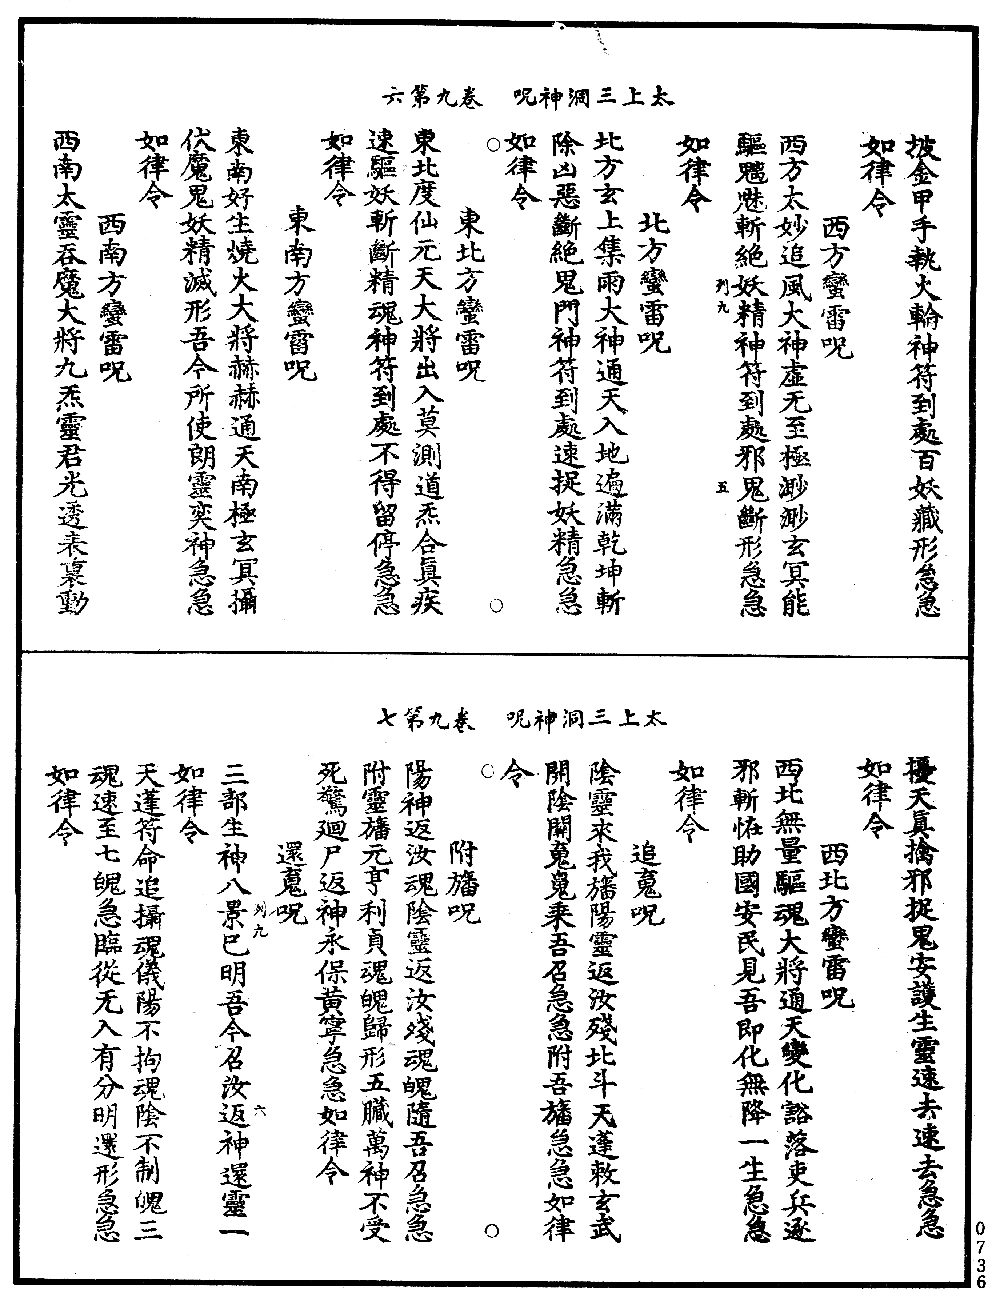 太上三洞神呪　卷九第六
披金甲手執火輪神符到處百妖藏形急急
如律令
西方蠻雷呪
西方太妙追風大神虛无至極渺渺玄冥能
驅魑魅斬絕妖精神符到處邪鬼斷形急急
列九　五
如律令
北方蠻雷呪
北方玄上集雨大神通天入地遍滿乾坤斬
除凶惡斷絕鬼門神符到處速捉妖精急急
如律令
東北方蠻雷呪
東北度仙元天大將出入莫測道炁合真疾
速驅妖斬斷精魂神符到處不得留停急急
如律令
東南方蠻雷呪
東南好生燒火大將赫赫通天南極玄冥攝
伏魔鬼妖精滅形吾令所使朗靈奕神急急
如律令
西南方蠻雷呪
西南太靈吞魔大將九炁靈君光透表裏動
太上三洞神呪　卷九第七
擾天真擒邪捉鬼安護生靈速去速去急急
如律令
西北方蠻雷呪
西北無量驅魂大將通天變化豁落吏兵逐
邪斬恠助國安民見吾即化無降一生急急
如律令
追䰟呪
陰靈來我旛陽靈返汝殘北斗天蓬敕玄武
開陰關䰟䰟乘吾召急急附吾旛急急如律
令
附旛呪
陽神返汝魂陰靈返汝殘魂魄隨吾召急急
附靈旛元亨利貞魂魄歸形五臟萬神不受
死驚廻尸返神永保黃寧急急如律令
還䰟呪
列九　六
三部生神八景已明吾今召汝返神還靈一
如律令
天蓬符命追攝魂儀陽不拘魂陰不制魄三
魂速至七魄急臨從无入有分明還形急急
如律令
0736